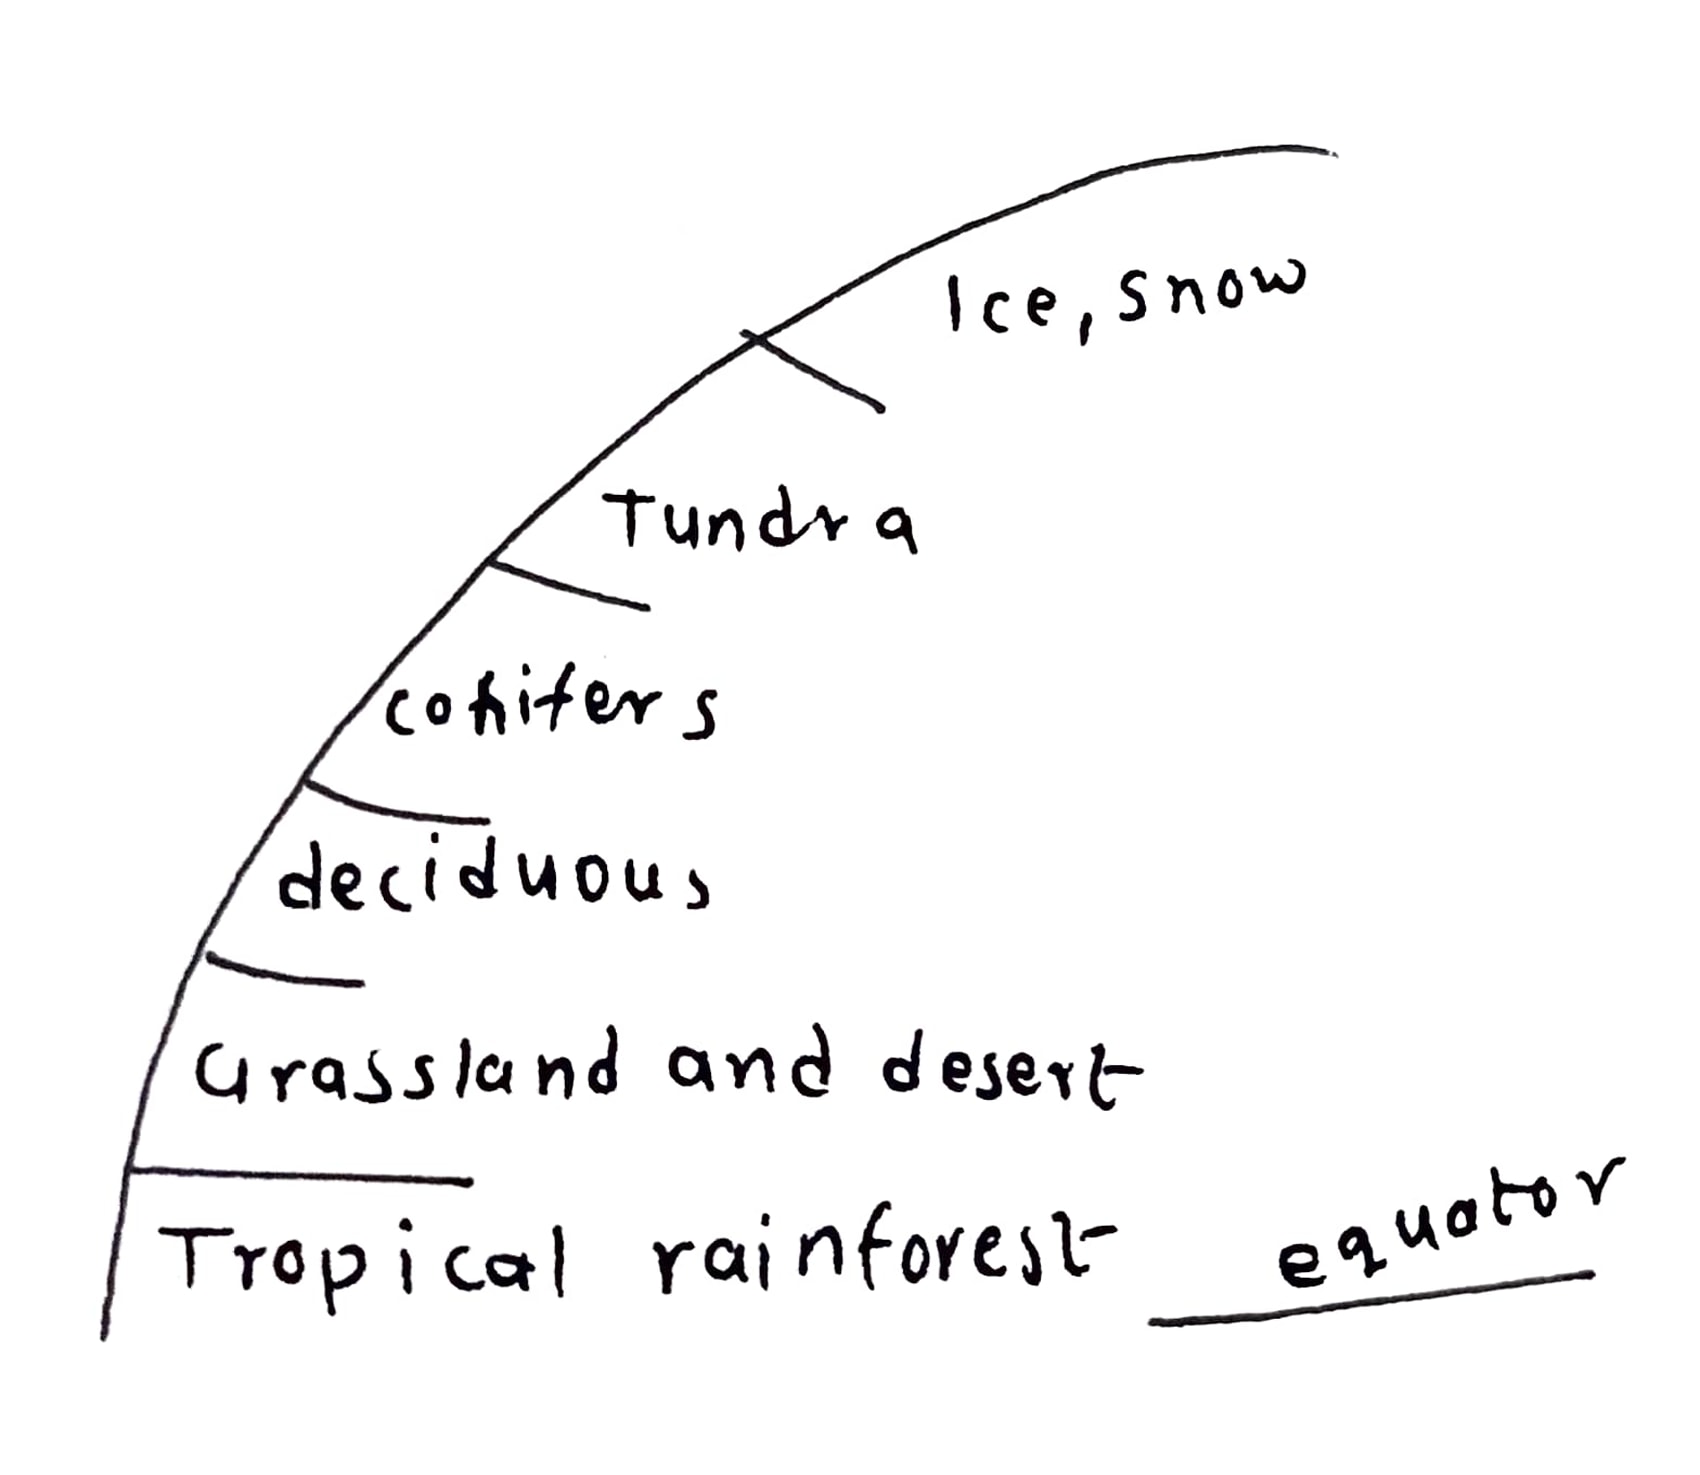 Ice, snow
Tundra
conifers
deciduous
Grassland and desert
Tropical rainforest
equator